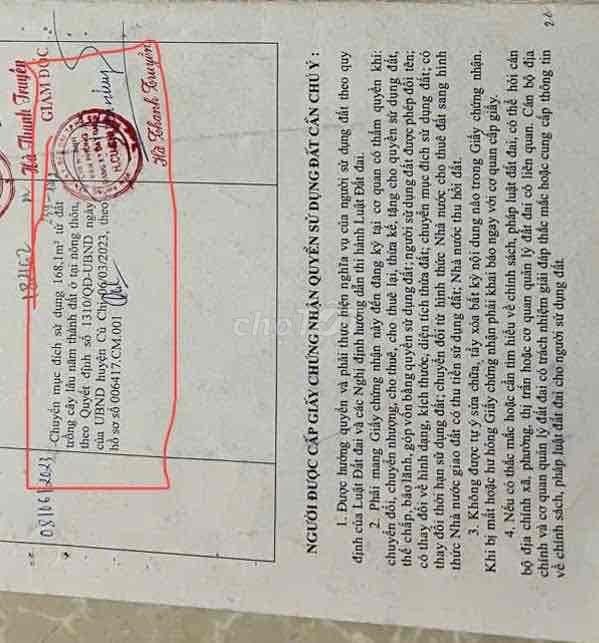 Hà Thanh Truyền
GIÁM ĐỐC
08/06/2023
-Chuyển mục đích sử dụng 168,1m² từ đất
trồng cây lâu năm thành đất ở tại nông thôn,
theo Quyết định số 1310/QĐ-UBND ngày
của UBND huyện Củ Chi 06/03/2023, theo
hồ sơ số 006417.CM.001
Hà Thanh Truyền
NGƯỜI ĐƯỢC CẤP GIẤY CHỨNG NHẬN QUYỀN SỬ DỤNG ĐẤT CẦN CHÚ Ý :
1. Được hưởng quyền và phải thực hiện nghĩa vụ của người sử dụng đất theo quy
định của Luật Đất đai và các Nghị định hướng dẫn thi hành Luật Đất đai.
2. Phải mang Giấy chứng nhận này đến đăng ký tại cơ quan có thẩm quyền khi:
chuyển đổi, chuyển nhượng, cho thuê, cho thuê lại, thừa kế, tặng cho quyền sử dụng đất,
thế chấp, bảo lãnh, góp vốn bằng quyền sử dụng đất; người sử dụng đất được phép đổi tên;
có thay đổi về hình dạng, kích thước, diện tích thửa đất; chuyển mục đích sử dụng đất; có
thay đổi thời hạn sử dụng đất; chuyển đổi từ hình thức Nhà nước cho thuê đất sang hình
thức Nhà nước giao đất có thu tiền sử dụng đất; Nhà nước thu hồi đất.
3. Không được tự ý sửa chữa, tẩy xóa bất kỳ nội dung nào trong Giấy chứng nhận.
Khi bị mất hoặc hư hỏng Giấy chứng nhận phải khai báo ngay với cơ quan cấp giấy.
4. Nếu có thắc mắc hoặc cần tìm hiểu về chính sách, pháp luật đất đai, có thể hỏi cán
bộ địa chính xã, phường, thị trấn hoặc cơ quan quản lý đất đai có liên quan. Cán bộ địa
chính và cơ quan quản lý đất đai có trách nhiệm giải đáp thắc mắc hoặc cung cấp thông tin
về chính sách, pháp luật đất đai cho người sử dụng đất.